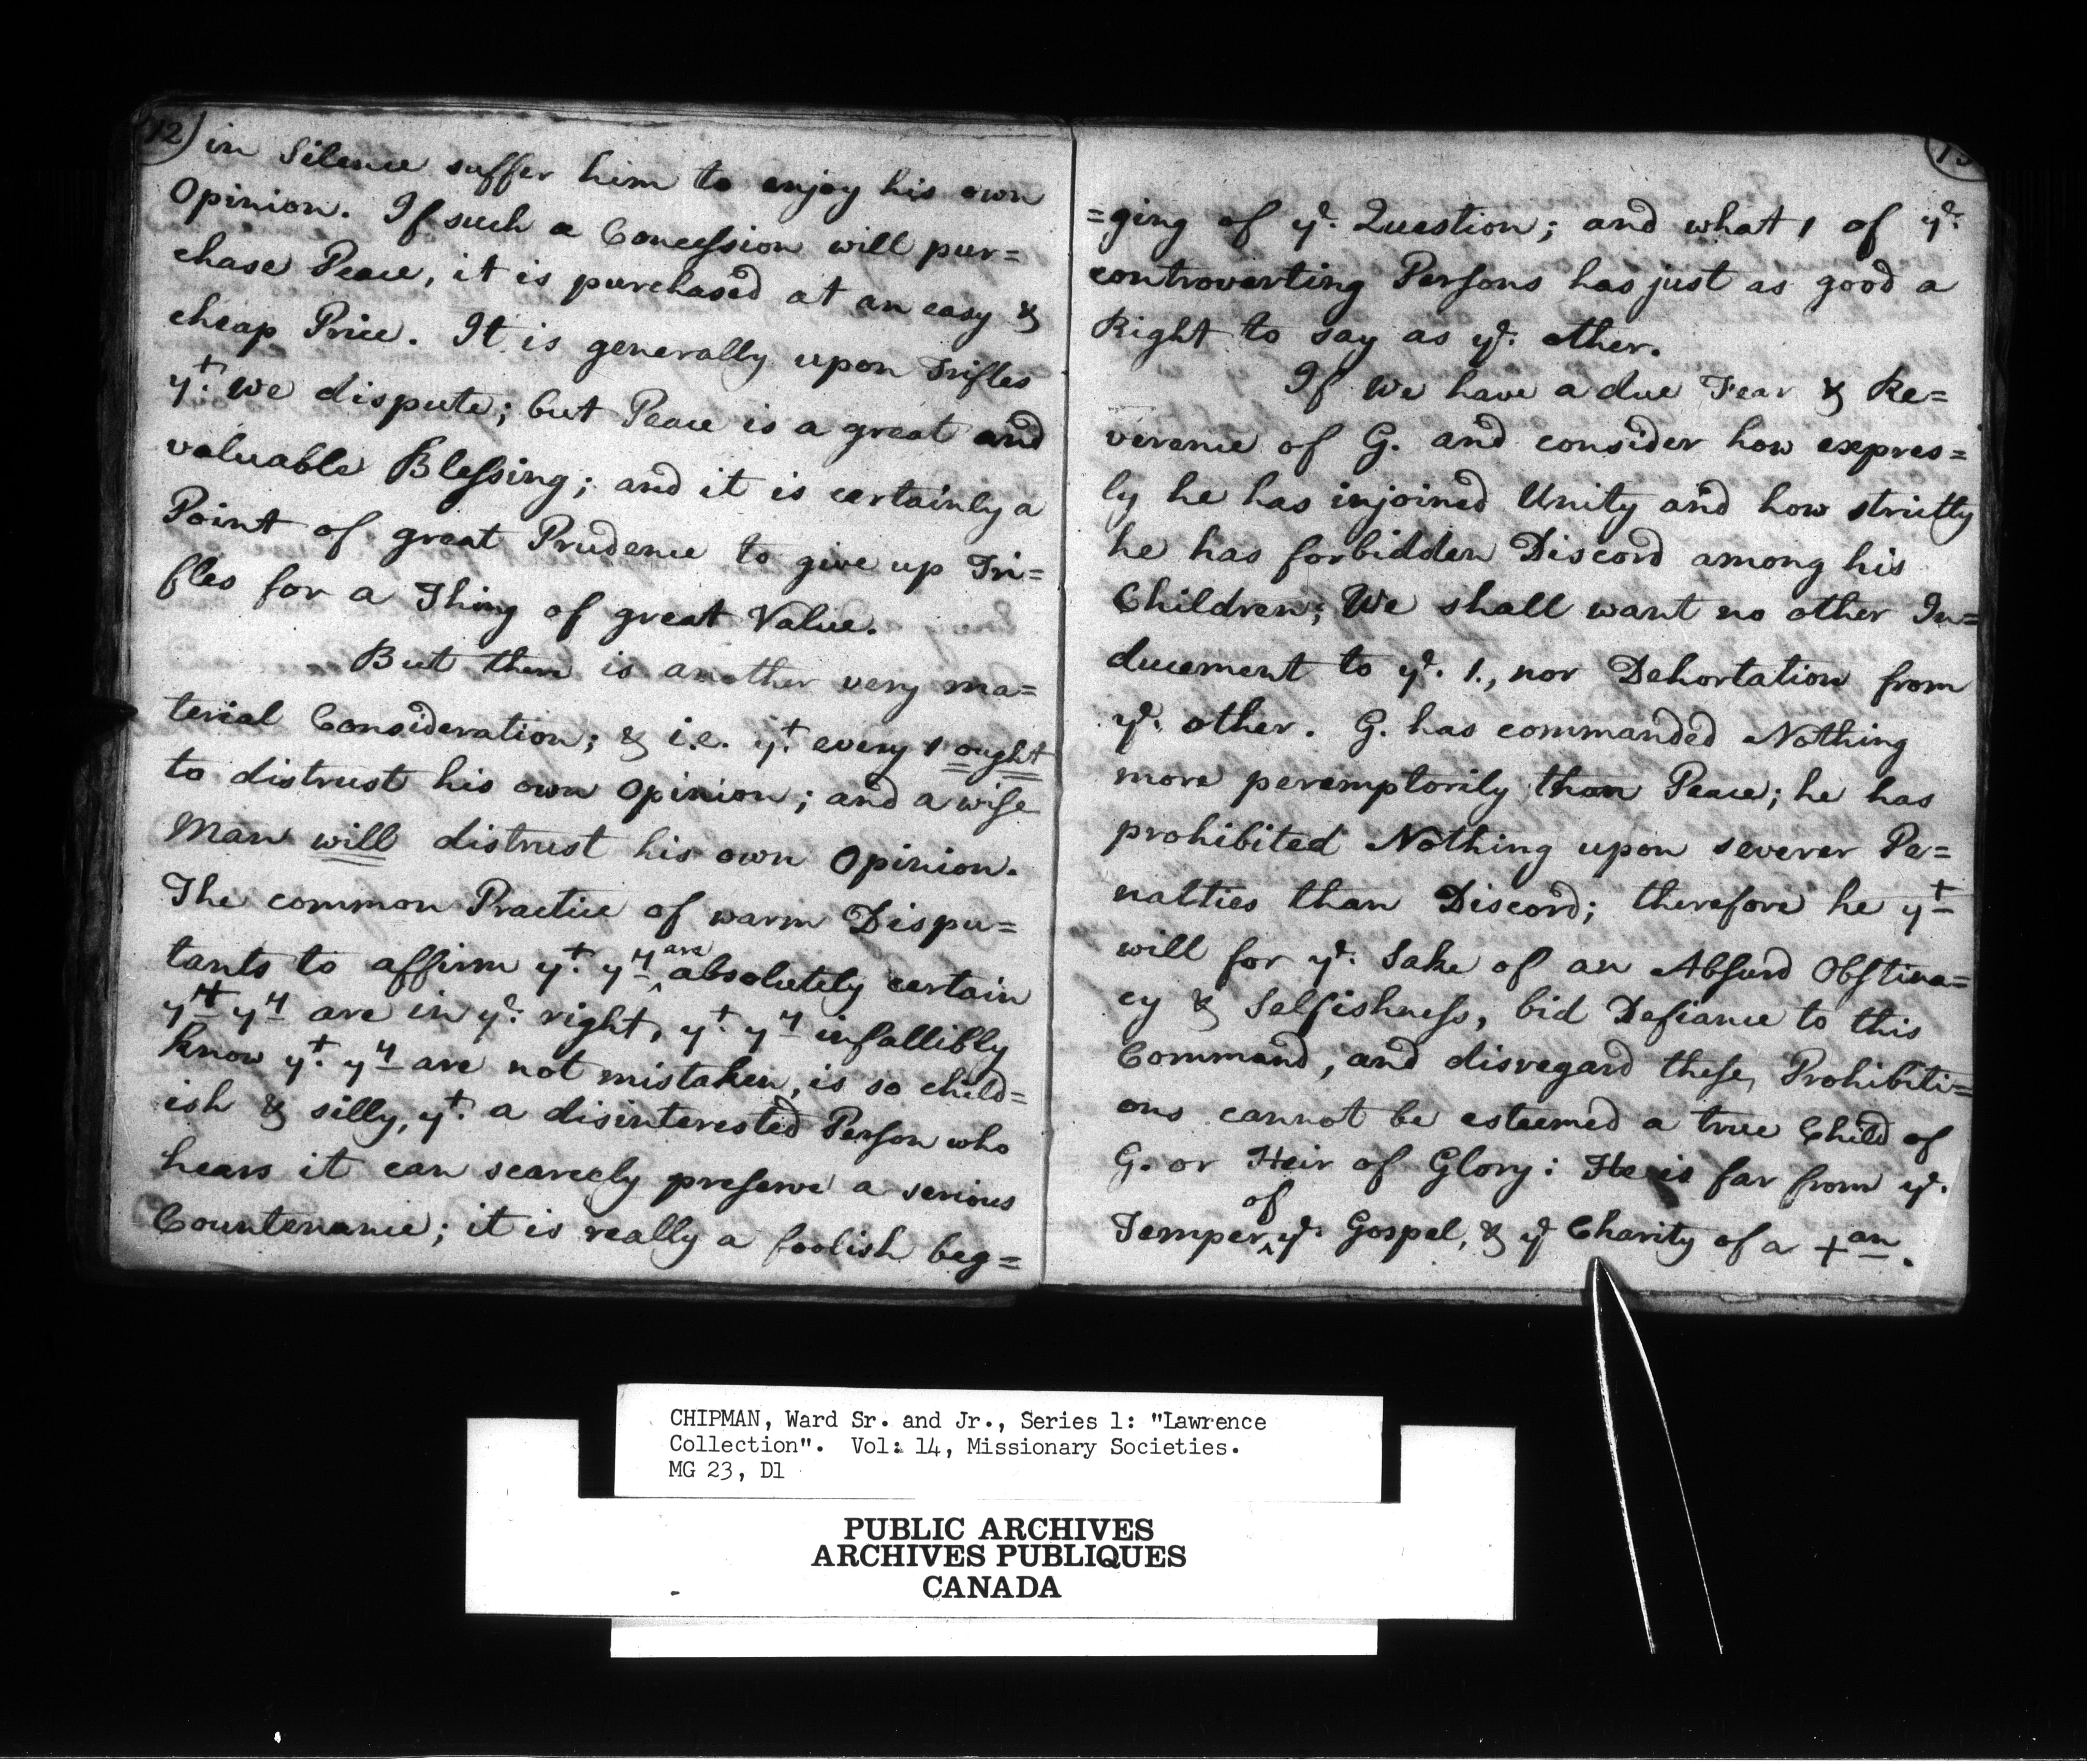 12) in Silence suffer him to enjoy his own
Opinion. If such a Concession will pur=
chase Peace, it is purchased at an easy &
cheap Price. It is generally upon Trifles
yt. We dispute; but Peace is a great and
valuable Blessing; and it is certainly a
Point of great Prudence to give up Tri=
fles for a Thing of great Value.
But there is another very ma=
terial Consideration; & i.e. yt. every 1 ought
to distrust his own Opinion; and a wise
Man will distrust his own Opinion.
The common Practice of warm Dispu=
tants to affirm yt. yy are absolutely certain
yt yy are in ye. right, yt. yy infallibly
know yt. yy are not mistaken, is so child=
ish & silly, yt. a disinterested Person who
hears it can scarcely preserve a serious
Countenance; it is really a foolish beg=
13
=ging of ye. Question; and what 1 of ye.
controverting Persons has just as good a
Right to say as ye. other.
If We have a due Fear & Re=
verence of G. and consider how expres=
ly he has injoined Unity and how strictly
he has forbidden Discord among his
Children; We shall want no other In=
ducement to ye. 1., nor Dehortation from
ye. other. G. has commanded Nothing
more peremptorily than Peace; he has
prohibited Nothing upon severer Pe=
nalties than Discord; therefore he yt
will for ye. Sake of an Absurd Obstina=
cy & Selfishness, bid Defiance to this
Command, and disregard these Prohibiti=
ons cannot be esteemed a true Child of
G. or Heir of Glory: He is far from ye.
Temper of ye. Gospel, & ye Charity of a +an.
CHIPMAN, Ward Sr. and Jr., Series 1: "Lawrence
Collection". Vol: 14, Missionary Societies.
MG 23, D1
PUBLIC ARCHIVES
ARCHIVES PUBLIQUES
CANADA